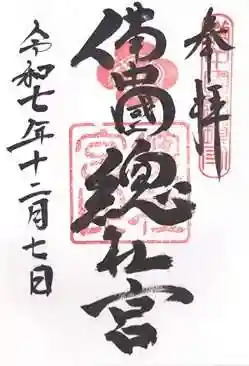 奉拝
備中國總社宮
令和七年十二月七日